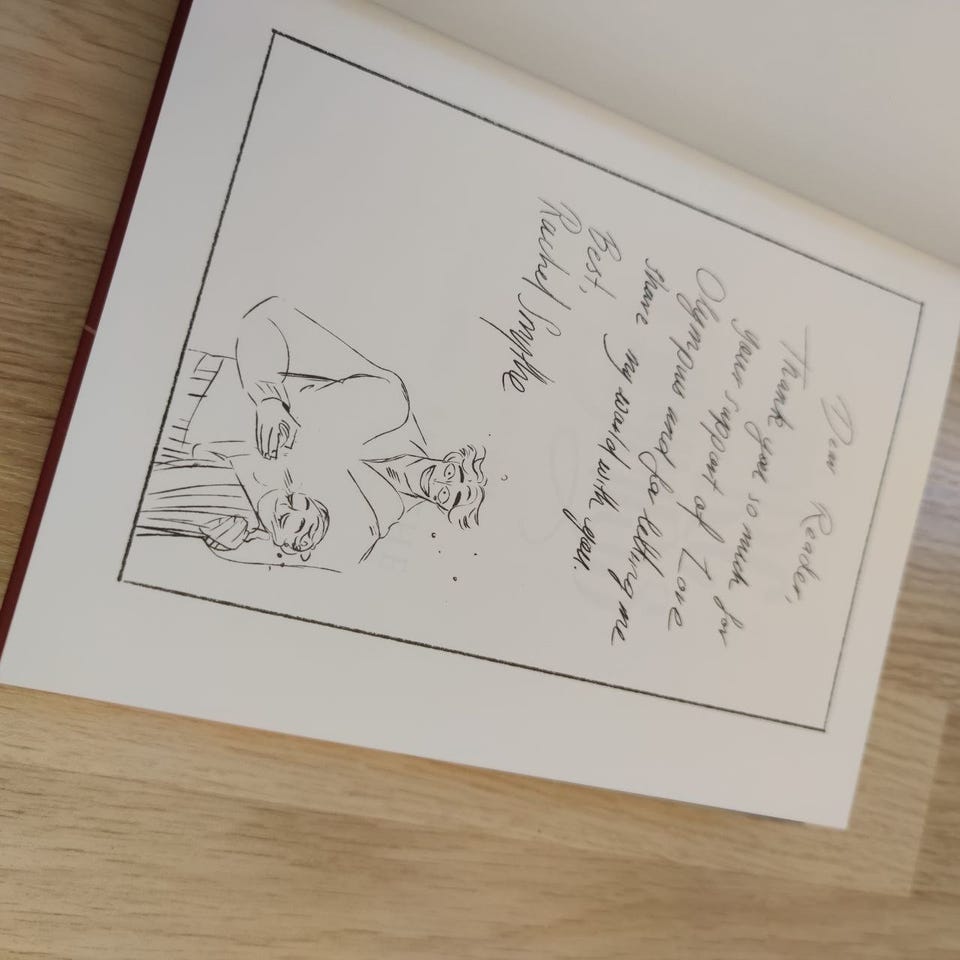 Dear Reader,
Thank you so much for
your support of Love
Olympus and for letting me
share my world with you.
Best,
Rachel Smythe